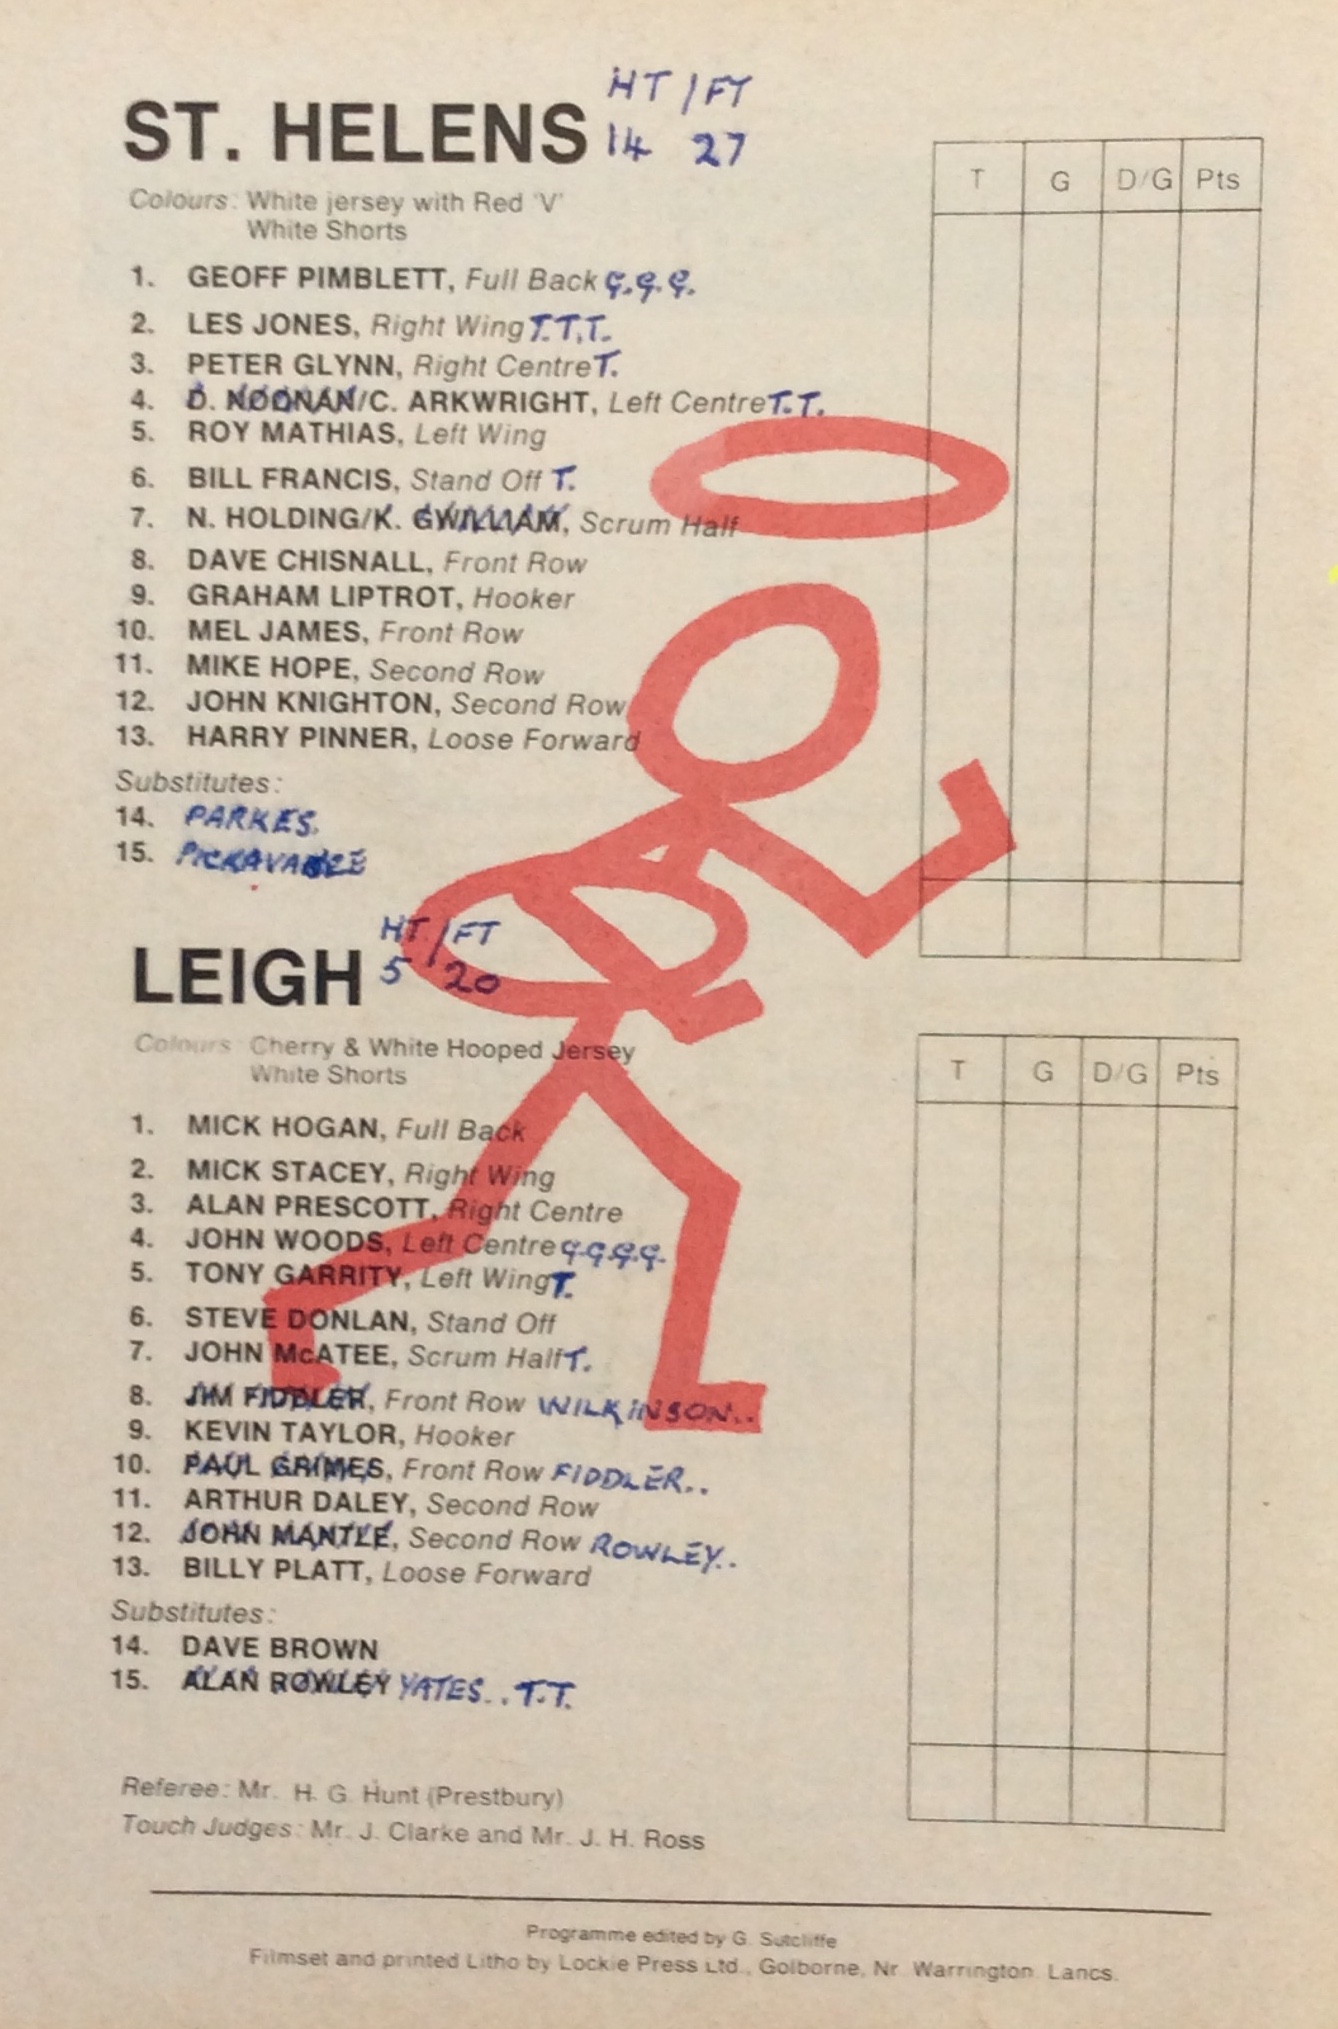 HT / FT
ST. HELENS 14 27
T G D/G Pts
Colours: White jersey with Red 'V'
White Shorts
1. GEOFF PIMBLETT, Full Back G.G.G.
2. LES JONES, Right Wing T.T.T.
3. PETER GLYNN, Right Centre T.
4. D. NOONAN/C. ARKWRIGHT, Left Centre T.T.
5. ROY MATHIAS, Left Wing
6. BILL FRANCIS, Stand Off T.
7. N. HOLDING/K. GWILLIAM, Scrum Half
8. DAVE CHISNALL, Front Row
9. GRAHAM LIPTROT, Hooker
10. MEL JAMES, Front Row
11. MIKE HOPE, Second Row
12. JOHN KNIGHTON, Second Row
13. HARRY PINNER, Loose Forward
Substitutes:
14. PARKES.
15.
HT / FT
LEIGH 5 20
Colours: Cherry & White Hooped Jersey
White Shorts
T G D/G Pts
1. MICK HOGAN, Full Back
2. MICK STACEY, Right Wing
3. ALAN PRESCOTT, Right Centre
4. JOHN WOODS, Left Centre G.G.G.G.
5. TONY GARRITY, Left Wing T.
6. STEVE DONLAN, Stand Off
7. JOHN McATEE, Scrum Half T.
8. JIM FIDDLER, Front Row WILKINSON..
9. KEVIN TAYLOR, Hooker
10. PAUL GRIMES, Front Row FIDDLER..
11. ARTHUR DALEY, Second Row
12. JOHN MANTLE, Second Row ROWLEY..
13. BILLY PLATT, Loose Forward
Substitutes:
14. DAVE BROWN
15. ALAN ROWLEY YATES.. T.T.
Referee: Mr. H. G. Hunt (Prestbury)
Touch Judges: Mr. J. Clarke and Mr. J. H. Ross
Programme edited by G. Sutcliffe
Filmset and printed Litho by Lockie Press Ltd., Golborne, Nr. Warrington. Lancs.